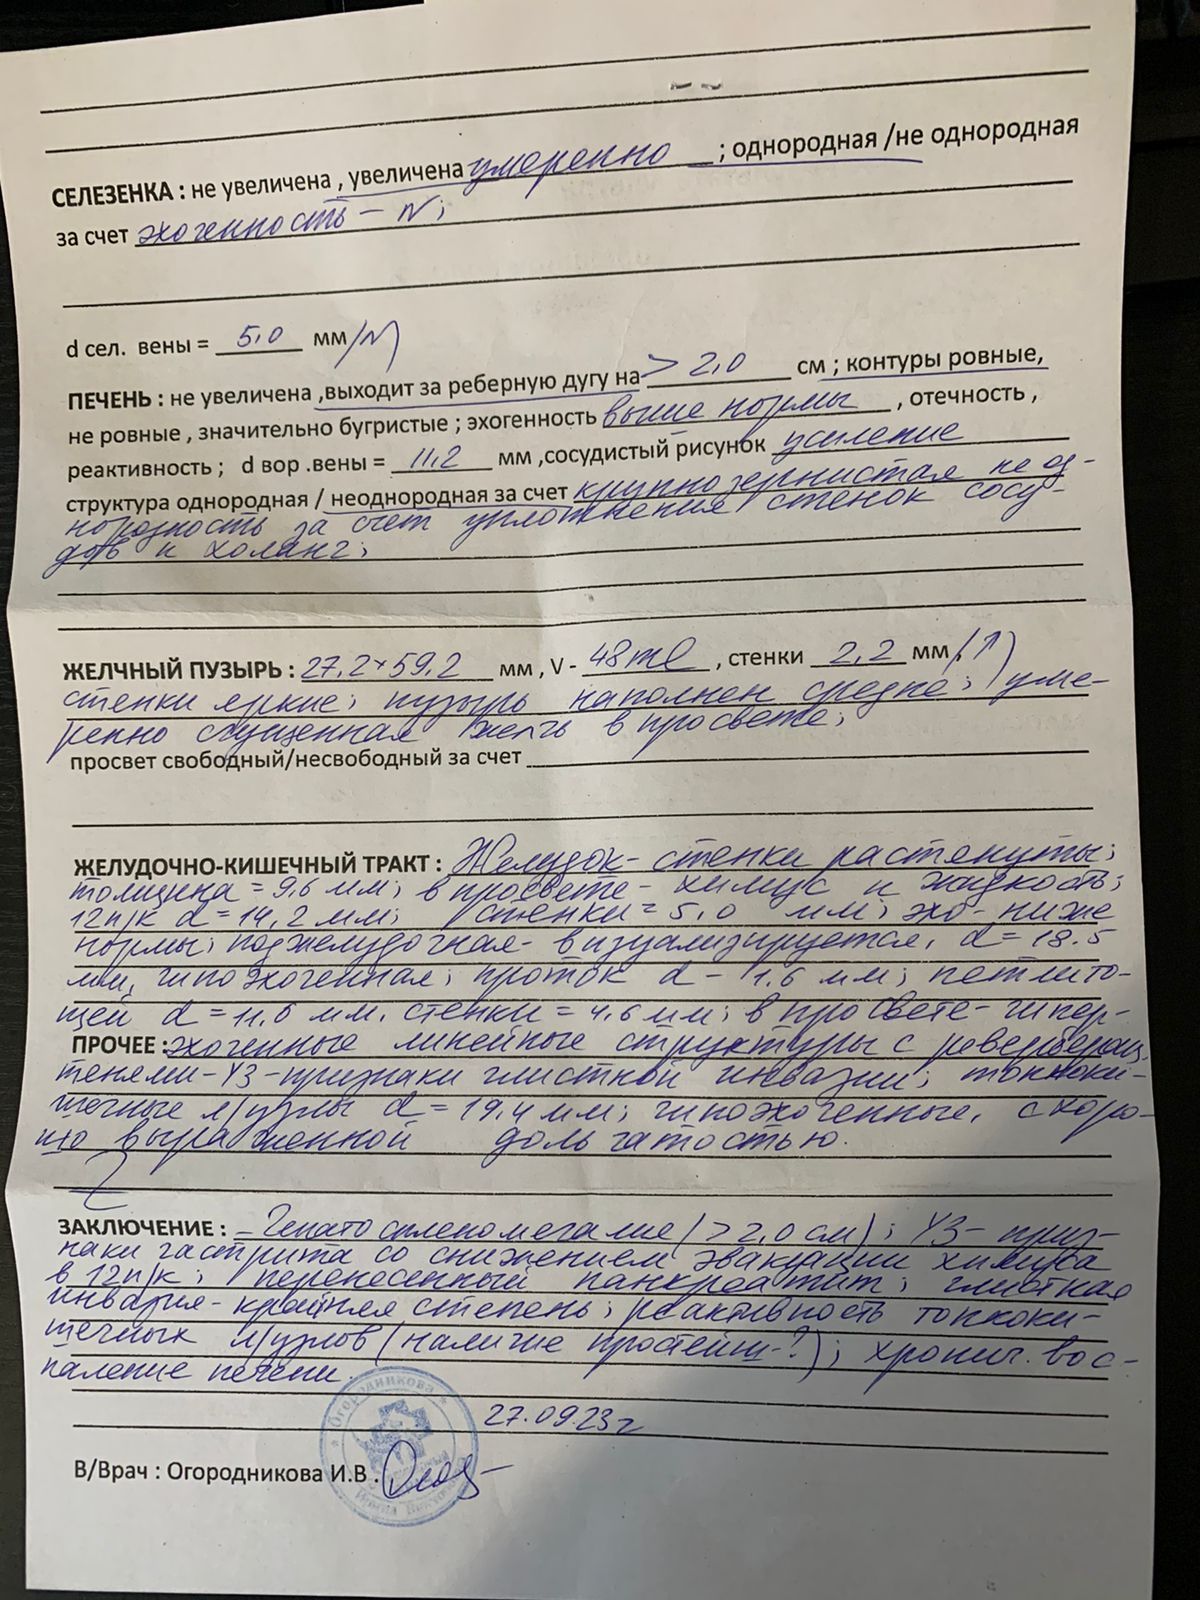 СЕЛЕЗЕНКА : не увеличена , увеличена умеренно ; однородная /не однородная
за счет эхогенность – N;
d сел. вены = 5,0 мм (N)
ПЕЧЕНЬ : не увеличена ,выходит за реберную дугу на > 2,0 см ; контуры ровные,
не ровные , значительно бугристые ; эхогенность выше нормы , отечность ,
реактивность ; d вор .вены = 11,2 мм ,сосудистый рисунок усиление
структура однородная / неоднородная за счет крупнозернистая неод-
нородность за счет уплотнения стенок сосу-
дов и холанг;
ЖЕЛЧНЫЙ ПУЗЫРЬ : 27,2×59,2 мм , V - 48ml , стенки 2,2 мм (↑)
стенки яркие; пузырь наполнен средне; уме-
ренно сгущенная желчь в просвете;
просвет свободный/несвободный за счет
ЖЕЛУДОЧНО-КИШЕЧНЫЙ ТРАКТ : Желудок- стенки растянуты;
толщина = 9,6 мм; в просвете- химус и жидкость;
12п/к d = 14,2 мм; стенки = 5,0 мм; эхо- ниже
нормы; поджелудочная- визуализируется, d = 18.5
мм, гипоэхогенная; проток d – 1.6 мм; петли то-
щей d = 11,6 мм, стенки = 4,6 мм; в просвете- гипер-
ПРОЧЕЕ : эхогенные линейные структуры с ревербера̄ц.
тенями-УЗ-признаки глистной инвазии; тонкоки-
шечные л/узлы d = 19,4 мм; гипоэхогенные, с хоро-
шо выраженной дольчатостью.
ЗАКЛЮЧЕНИЕ : – Гепатоспленомегалие (> 2,0 см); УЗ- приз-
наки гастрита со снижением эвакуации химуса
в 12п/к; перенесенный панкреатит; глистная
инвазия- крайняя степень; реактивность тонкоки-
шечных л/узлов (наличие простейш-?); хронич. вос-
паление печени.
27.09.23г
В/Врач : Огородникова И.В .
Огородникова